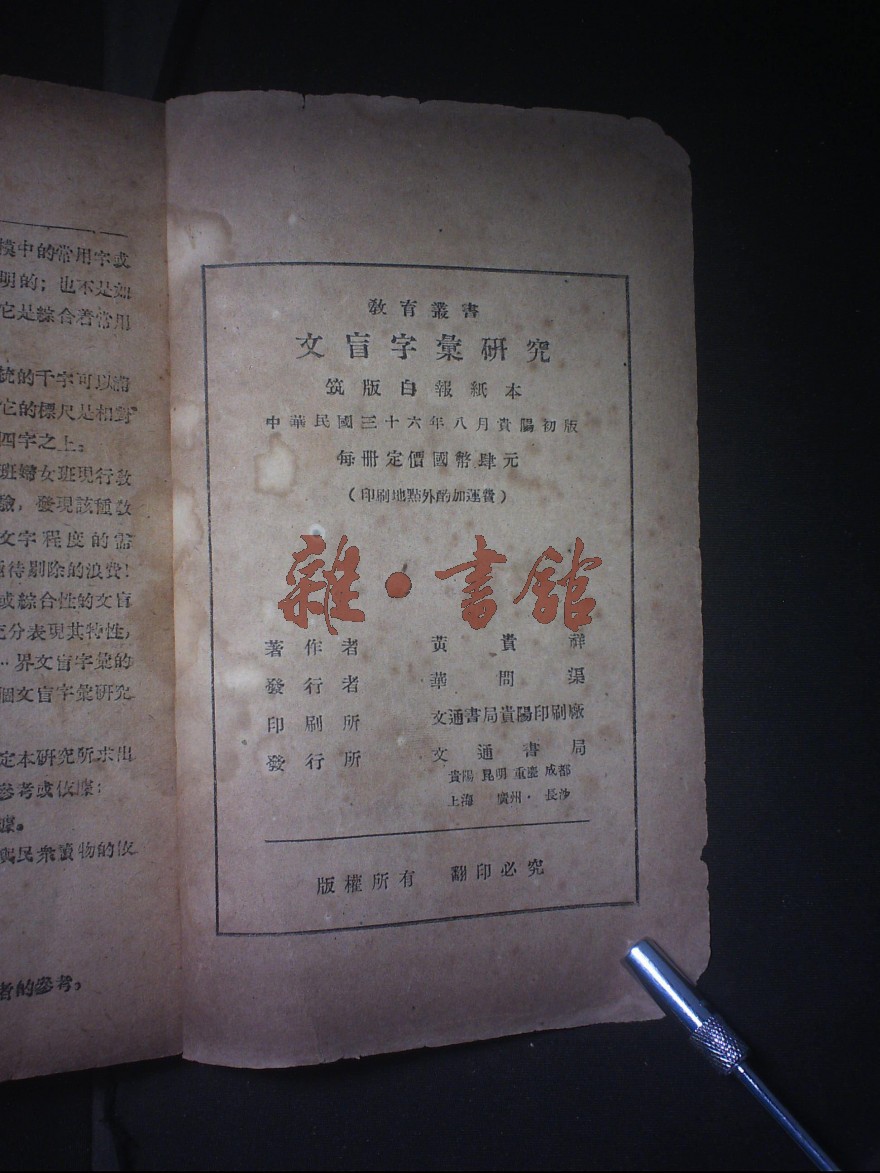 模中的常用字或
明的；也不是如
它是綜合着常用
統的千字可以稱
它的標尺是相對
四字之上。
班婦女班現行教
驗，發現該種教
文字程度的需
待剔除的浪費！
或綜合性的文盲
充分表現其特性，
界文盲字彙的
個文盲字彙研究
定本研究所求出
參考或依據；
據。
與民衆讀物的依
者的參考，
教育叢書
文盲字彙研究
筑版白報紙本
中華民國三十六年八月貴陽初版
每冊定價國幣肆元
（印刷地點外酌加運費）
雜·書館
著作者 黃貴祥
發行者 華問渠
印刷所 文通書局貴陽印刷廠
發行所 文通書局
貴陽 昆明 重慶 成都
上海 廣州· 長沙
版權所有 翻印必究